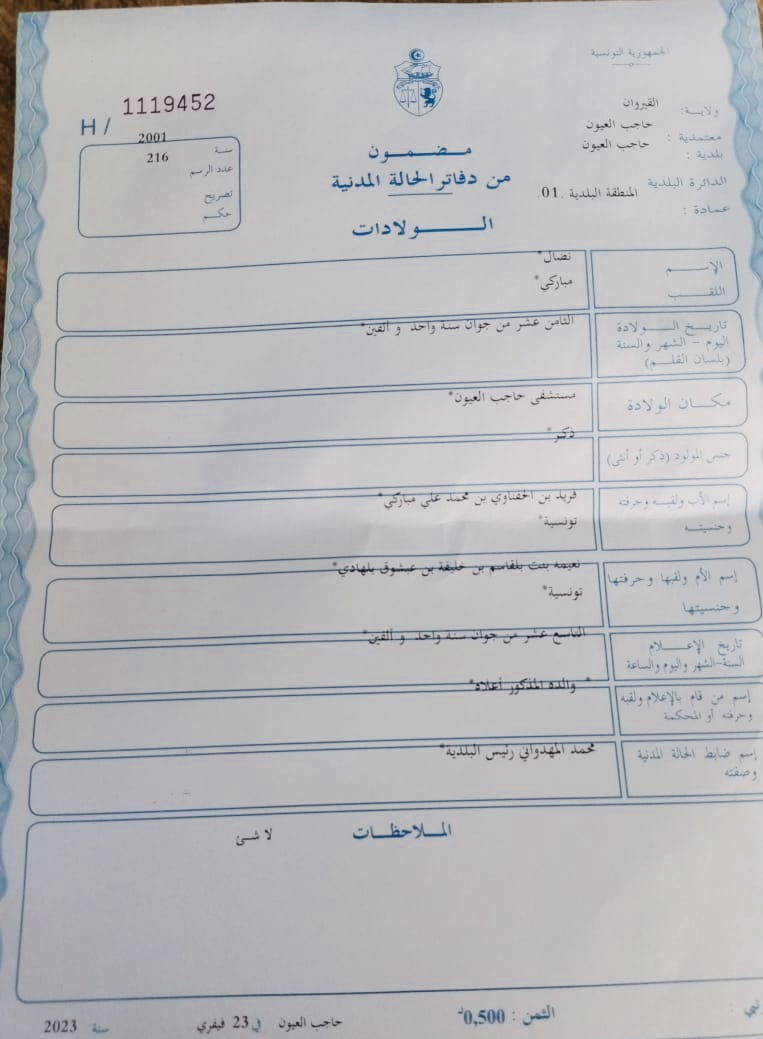 الجمهورية التونسية
ولاية: القيروان
معتمدية: حاجب العيون
بلدية: حاجب العيون
الدائرة البلدية المنطقة البلدية .01.
عمادة:
H / 1119452
سنة 2001
عدد الرسم 216
تصريح
حكم
مضمون
من دفاتر الحالة المدنية
الولادات
الإسم نضال*
اللقب مباركي*
تاريخ الولادة الثامن عشر من جوان سنة واحد و ألفين*
اليوم - الشهر والسنة
(بلسان القلم)
مكان الولادة مستشفى حاجب العيون*
جنس المولود (ذكر أو أنثى) ذكر*
إسم الأب ولقبه وحرفته فريد بن الحفناوي بن محمد علي مباركي*
وجنسيته تونسية*
إسم الأم ولقبها وحرفتها نعيمه بنت بلقاسم بن خليفة بن عيشوق بلهادي*
وجنسيتها تونسية*
تاريخ الإعلام التاسع عشر من جوان سنة واحد و ألفين*
السنة-الشهر واليوم والساعة
إسم من قام بالإعلام ولقبه * والده المذكور أعلاه*
وحرفته أو المحكمة
إسم ضابط الحالة المدنية محمد المهدواني رئيس البلدية*
وصفته
الملاحظات
لا شئ
الثمن : 0,500د
حاجب العيون في 23 فيفري سنة 2023